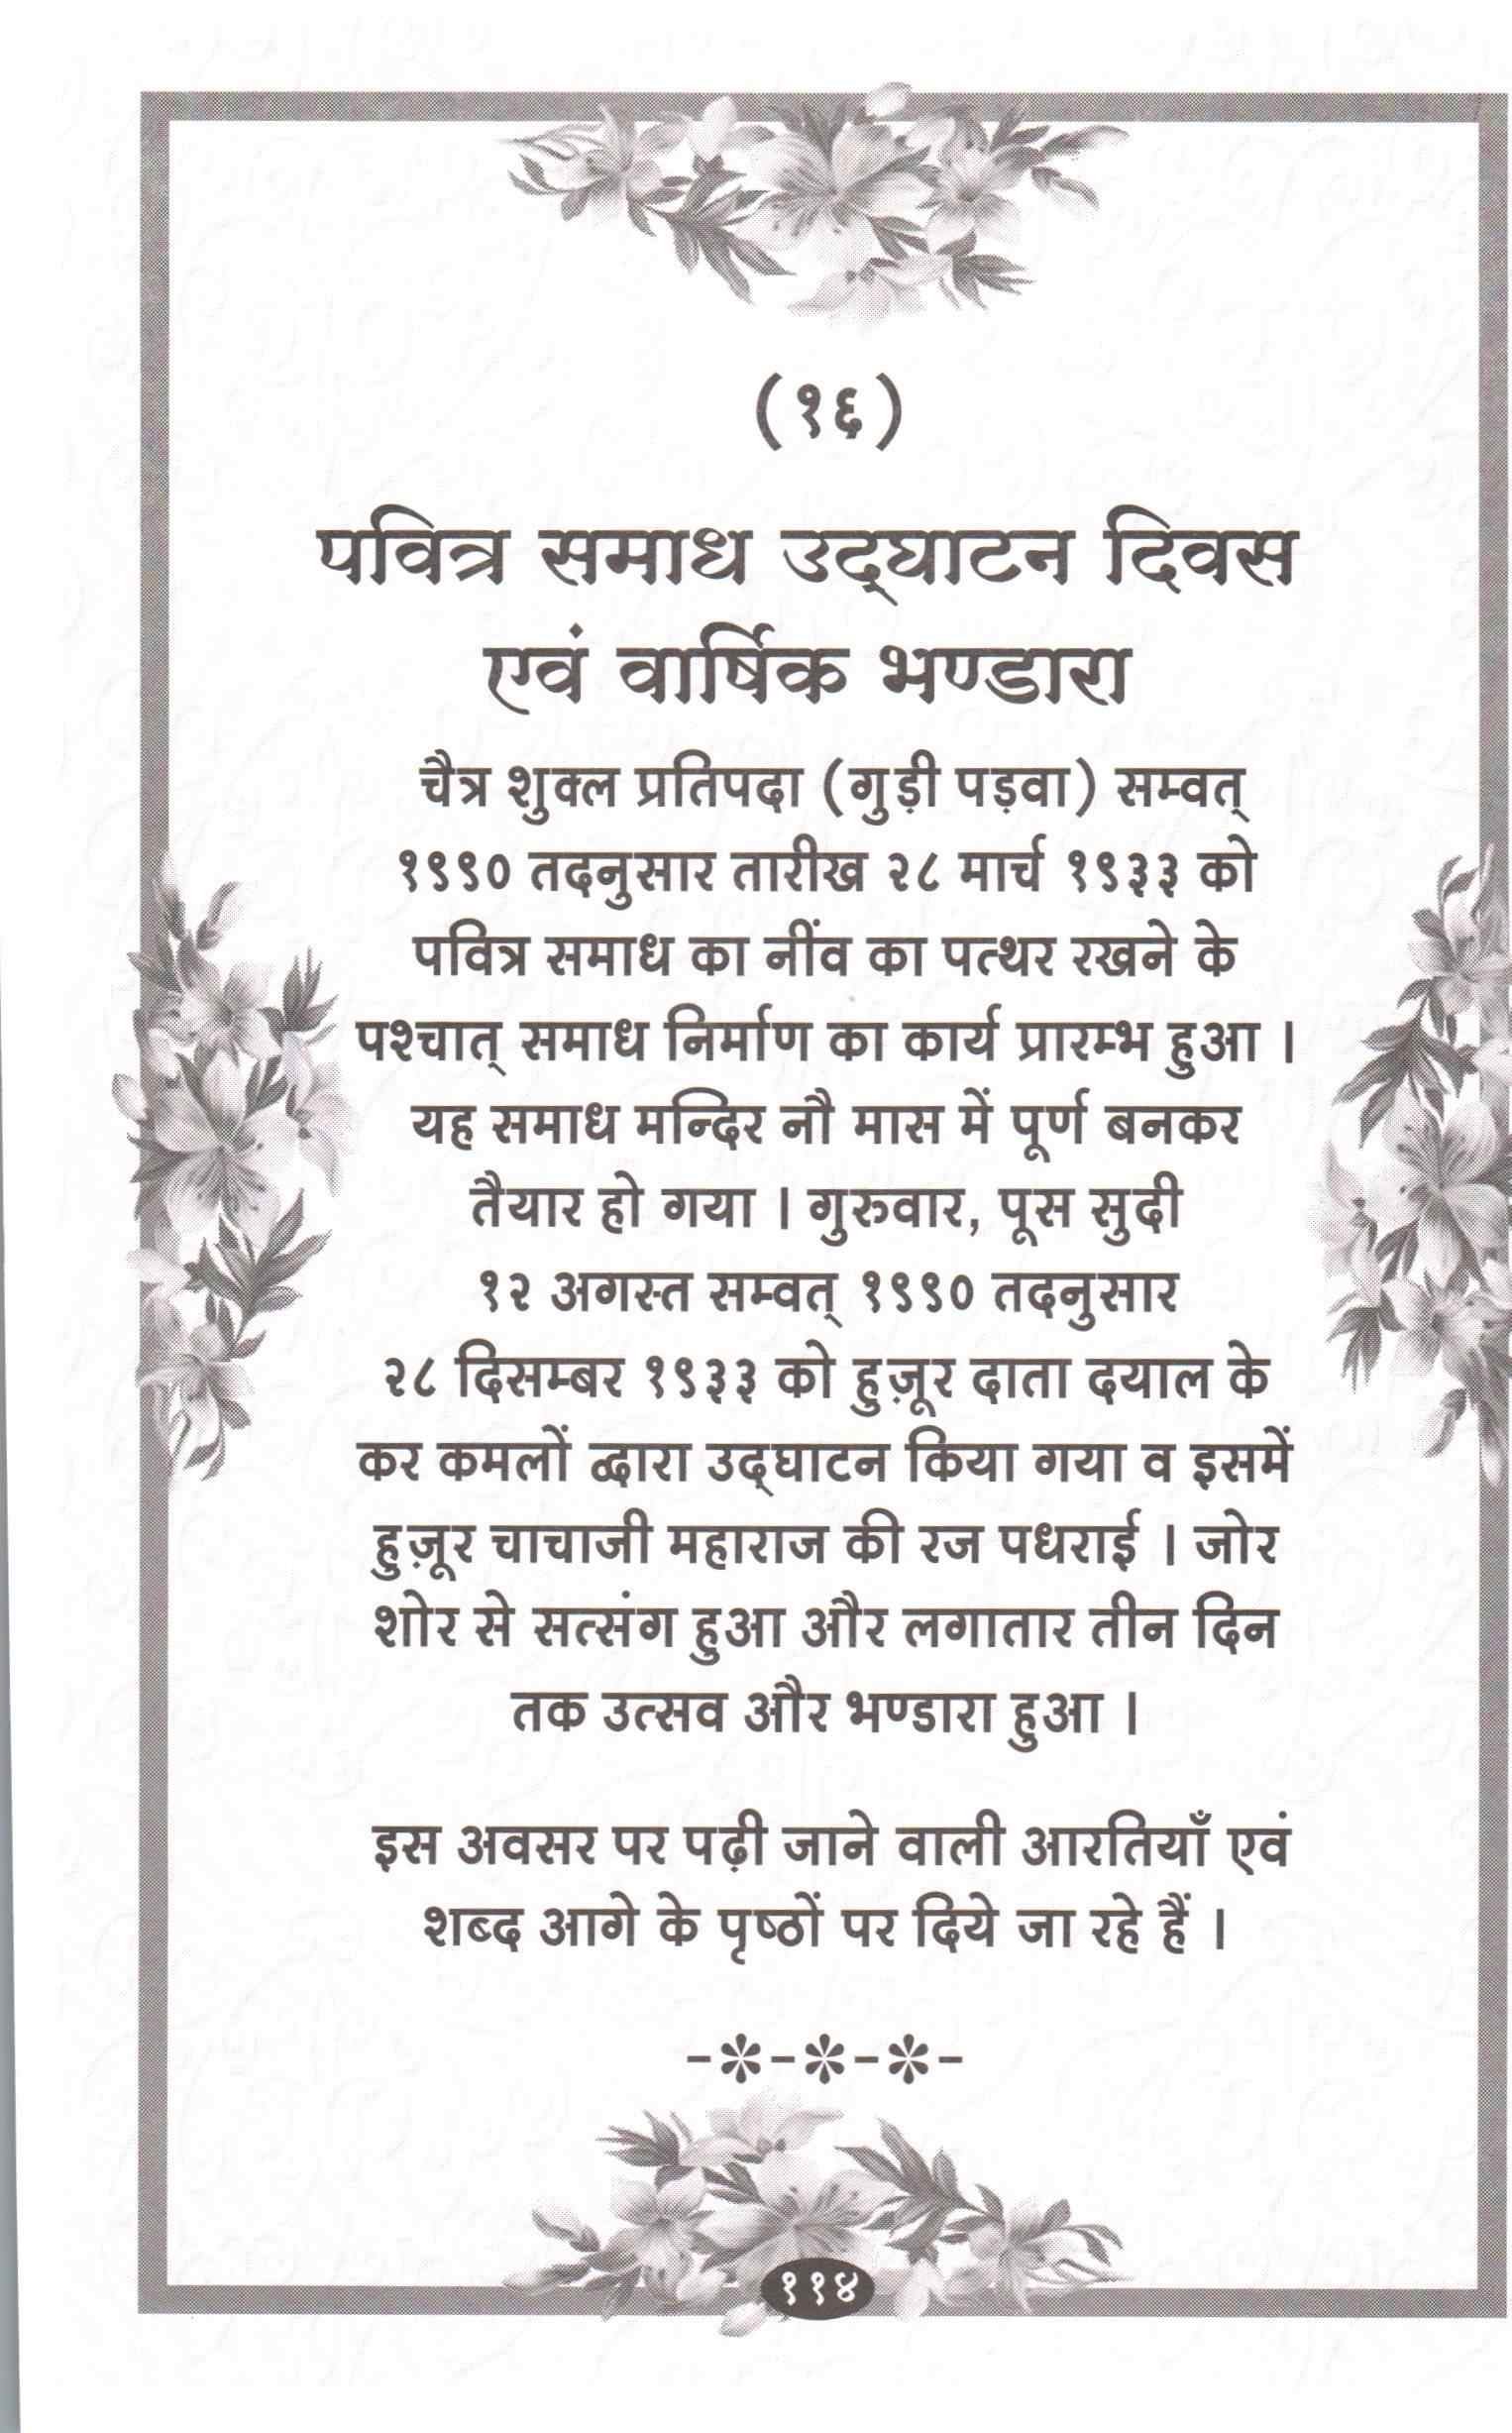 (१६)
पवित्र समाध उद्‌घाटन दिवस
एवं वार्षिक भण्डारा
चैत्र शुक्ल प्रतिपदा (गुड़ी पड़वा) सम्वत्
१९९० तदनुसार तारीख २८ मार्च १९३३ को
पवित्र समाध का नींव का पत्थर रखने के
पश्चात् समाध निर्माण का कार्य प्रारम्भ हुआ ।
यह समाध मन्दिर नौ मास में पूर्ण बनकर
तैयार हो गया । गुरुवार, पूस सुदी
१२ अगस्त सम्वत् १९९० तदनुसार
२८ दिसम्बर १९३३ को हुज़ूर दाता दयाल के
कर कमलों द्वारा उद्‌घाटन किया गया व इसमें
हुज़ूर चाचाजी महाराज की रज पधराई । जोर
शोर से सत्संग हुआ और लगातार तीन दिन
तक उत्सव और भण्डारा हुआ ।
इस अवसर पर पढ़ी जाने वाली आरतियाँ एवं
शब्द आगे के पृष्ठों पर दिये जा रहे हैं ।
-*-*-*-
११४